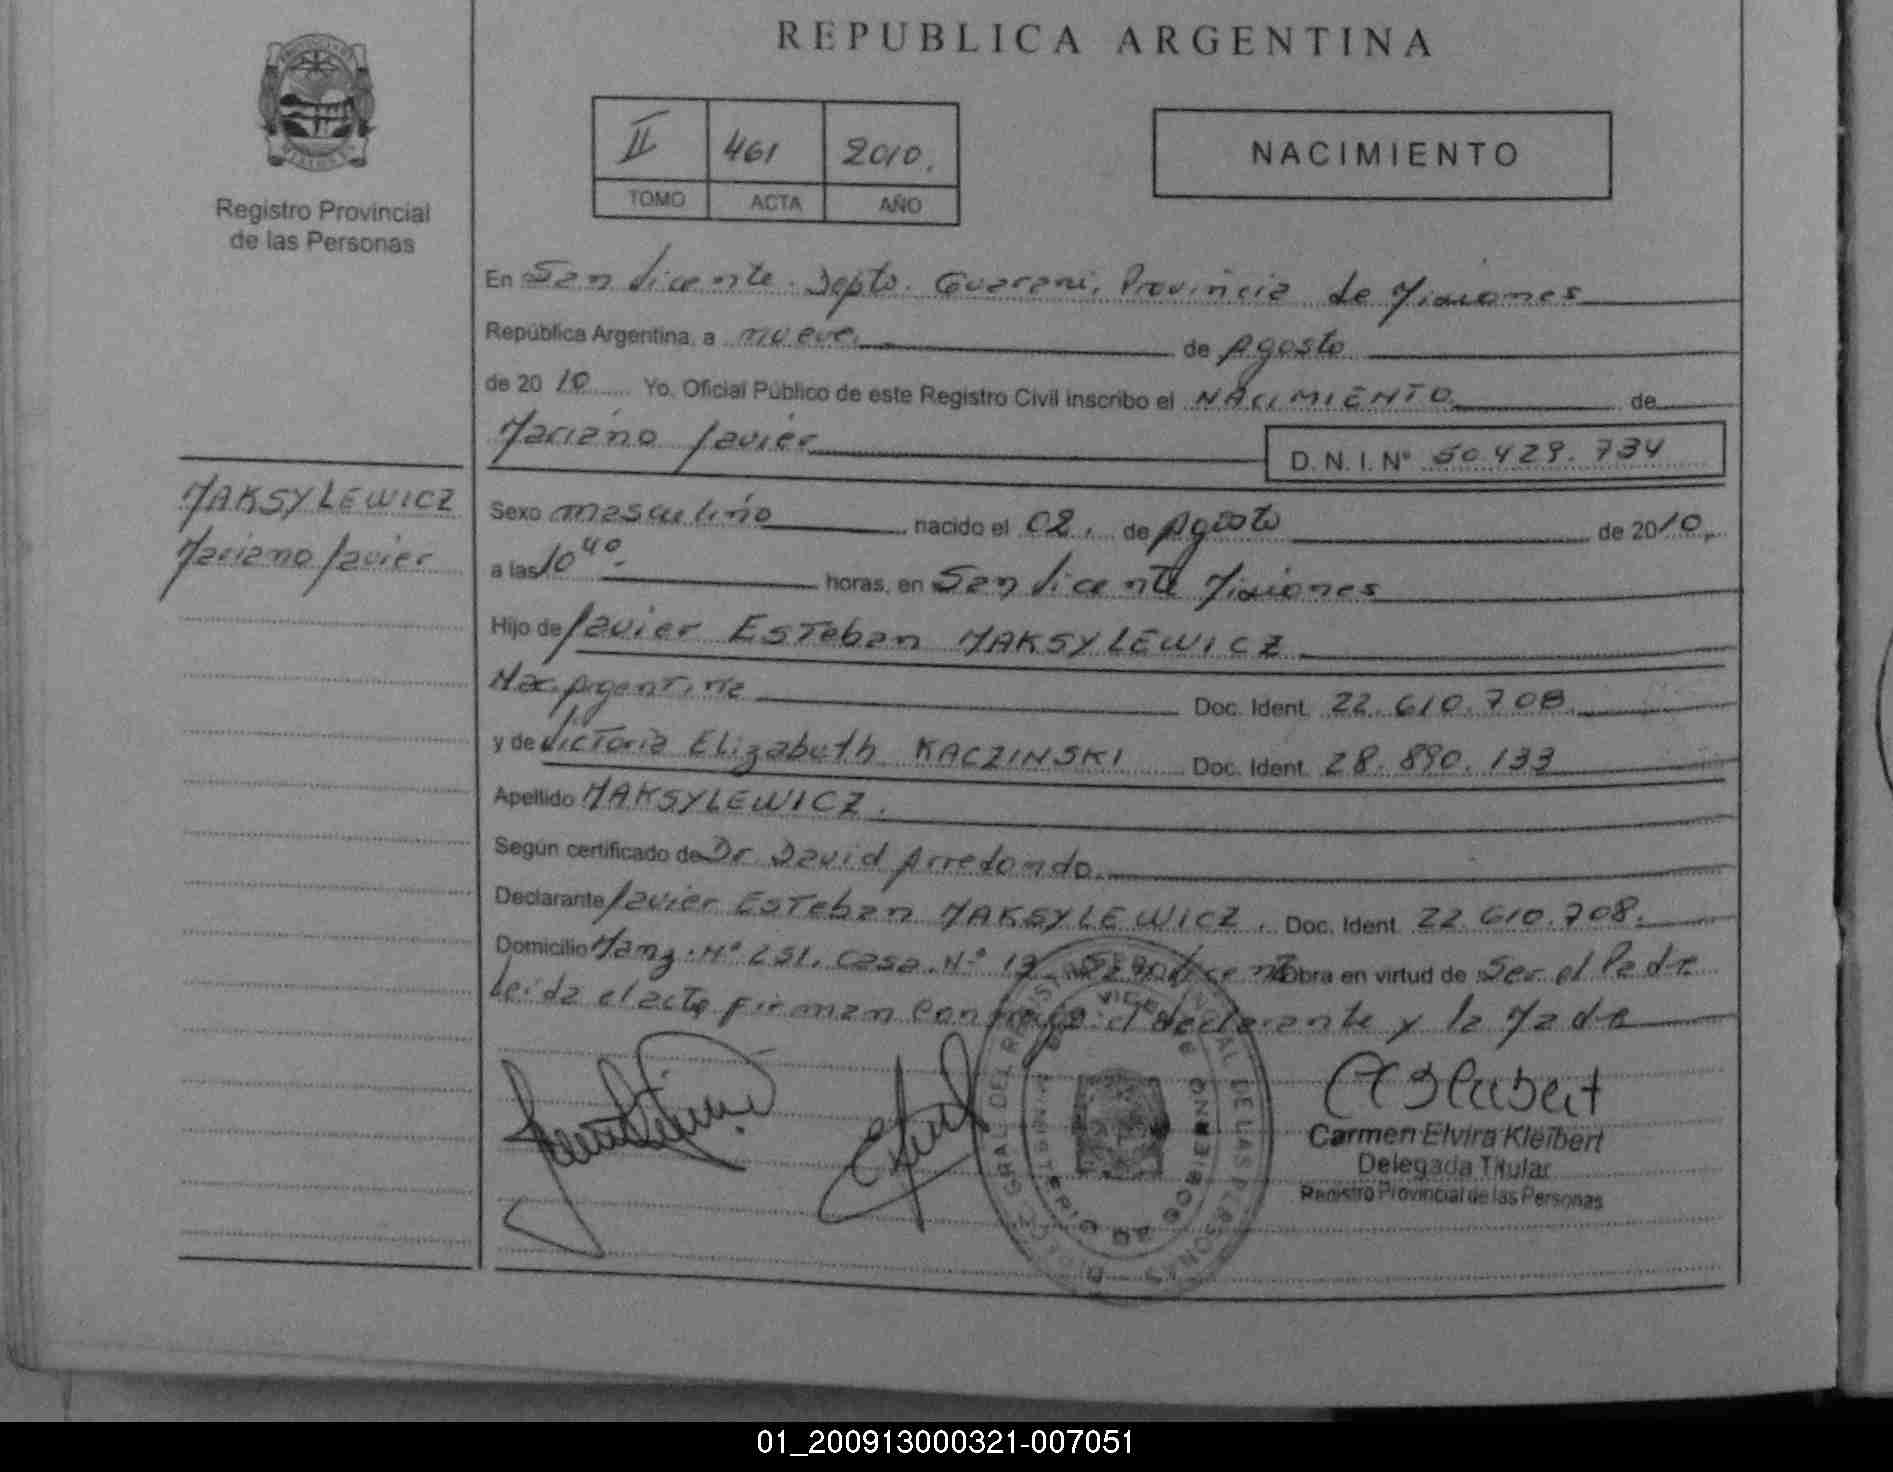 REPUBLICA ARGENTINA
II 461 2010.
TOMO ACTA AÑO
NACIMIENTO
Registro Provincial
de las Personas
MAKSYLEWICZ
Mariano Javier
En San Vicente. Depto. Guaraní, Provincia de Misiones
República Argentina, a nueve de Agosto
de 2010 Yo, Oficial Público de este Registro Civil inscribo el NACIMIENTO de
Mariano Javier
D. N. I. Nº 50.429.734
Sexo masculino nacido el 02. de Agosto de 2010.
a las 10 40. horas, en San Vicente Misiones
Hijo de Javier Esteban MAKSYLEWICZ
Nac. Argentina Doc. Ident. 22.610.708
y de Victoria Elizabeth KACZINSKI Doc. Ident. 28.890.133
Apellido MAKSYLEWICZ.
Según certificado de Dr. David Arredondo.
Declarante Javier Esteban MAKSYLEWICZ. Doc. Ident. 22.610.708.
Domicilio Manz. Nº 251. Casa. Nº San Vicente Obra en virtud de Ser el Padre
Leída el acta firman conmigo el declarante y la Madre
Carmen Elvira Kleibert
Delegada Titular
Registro Provincial de las Personas
01_200913000321-007051